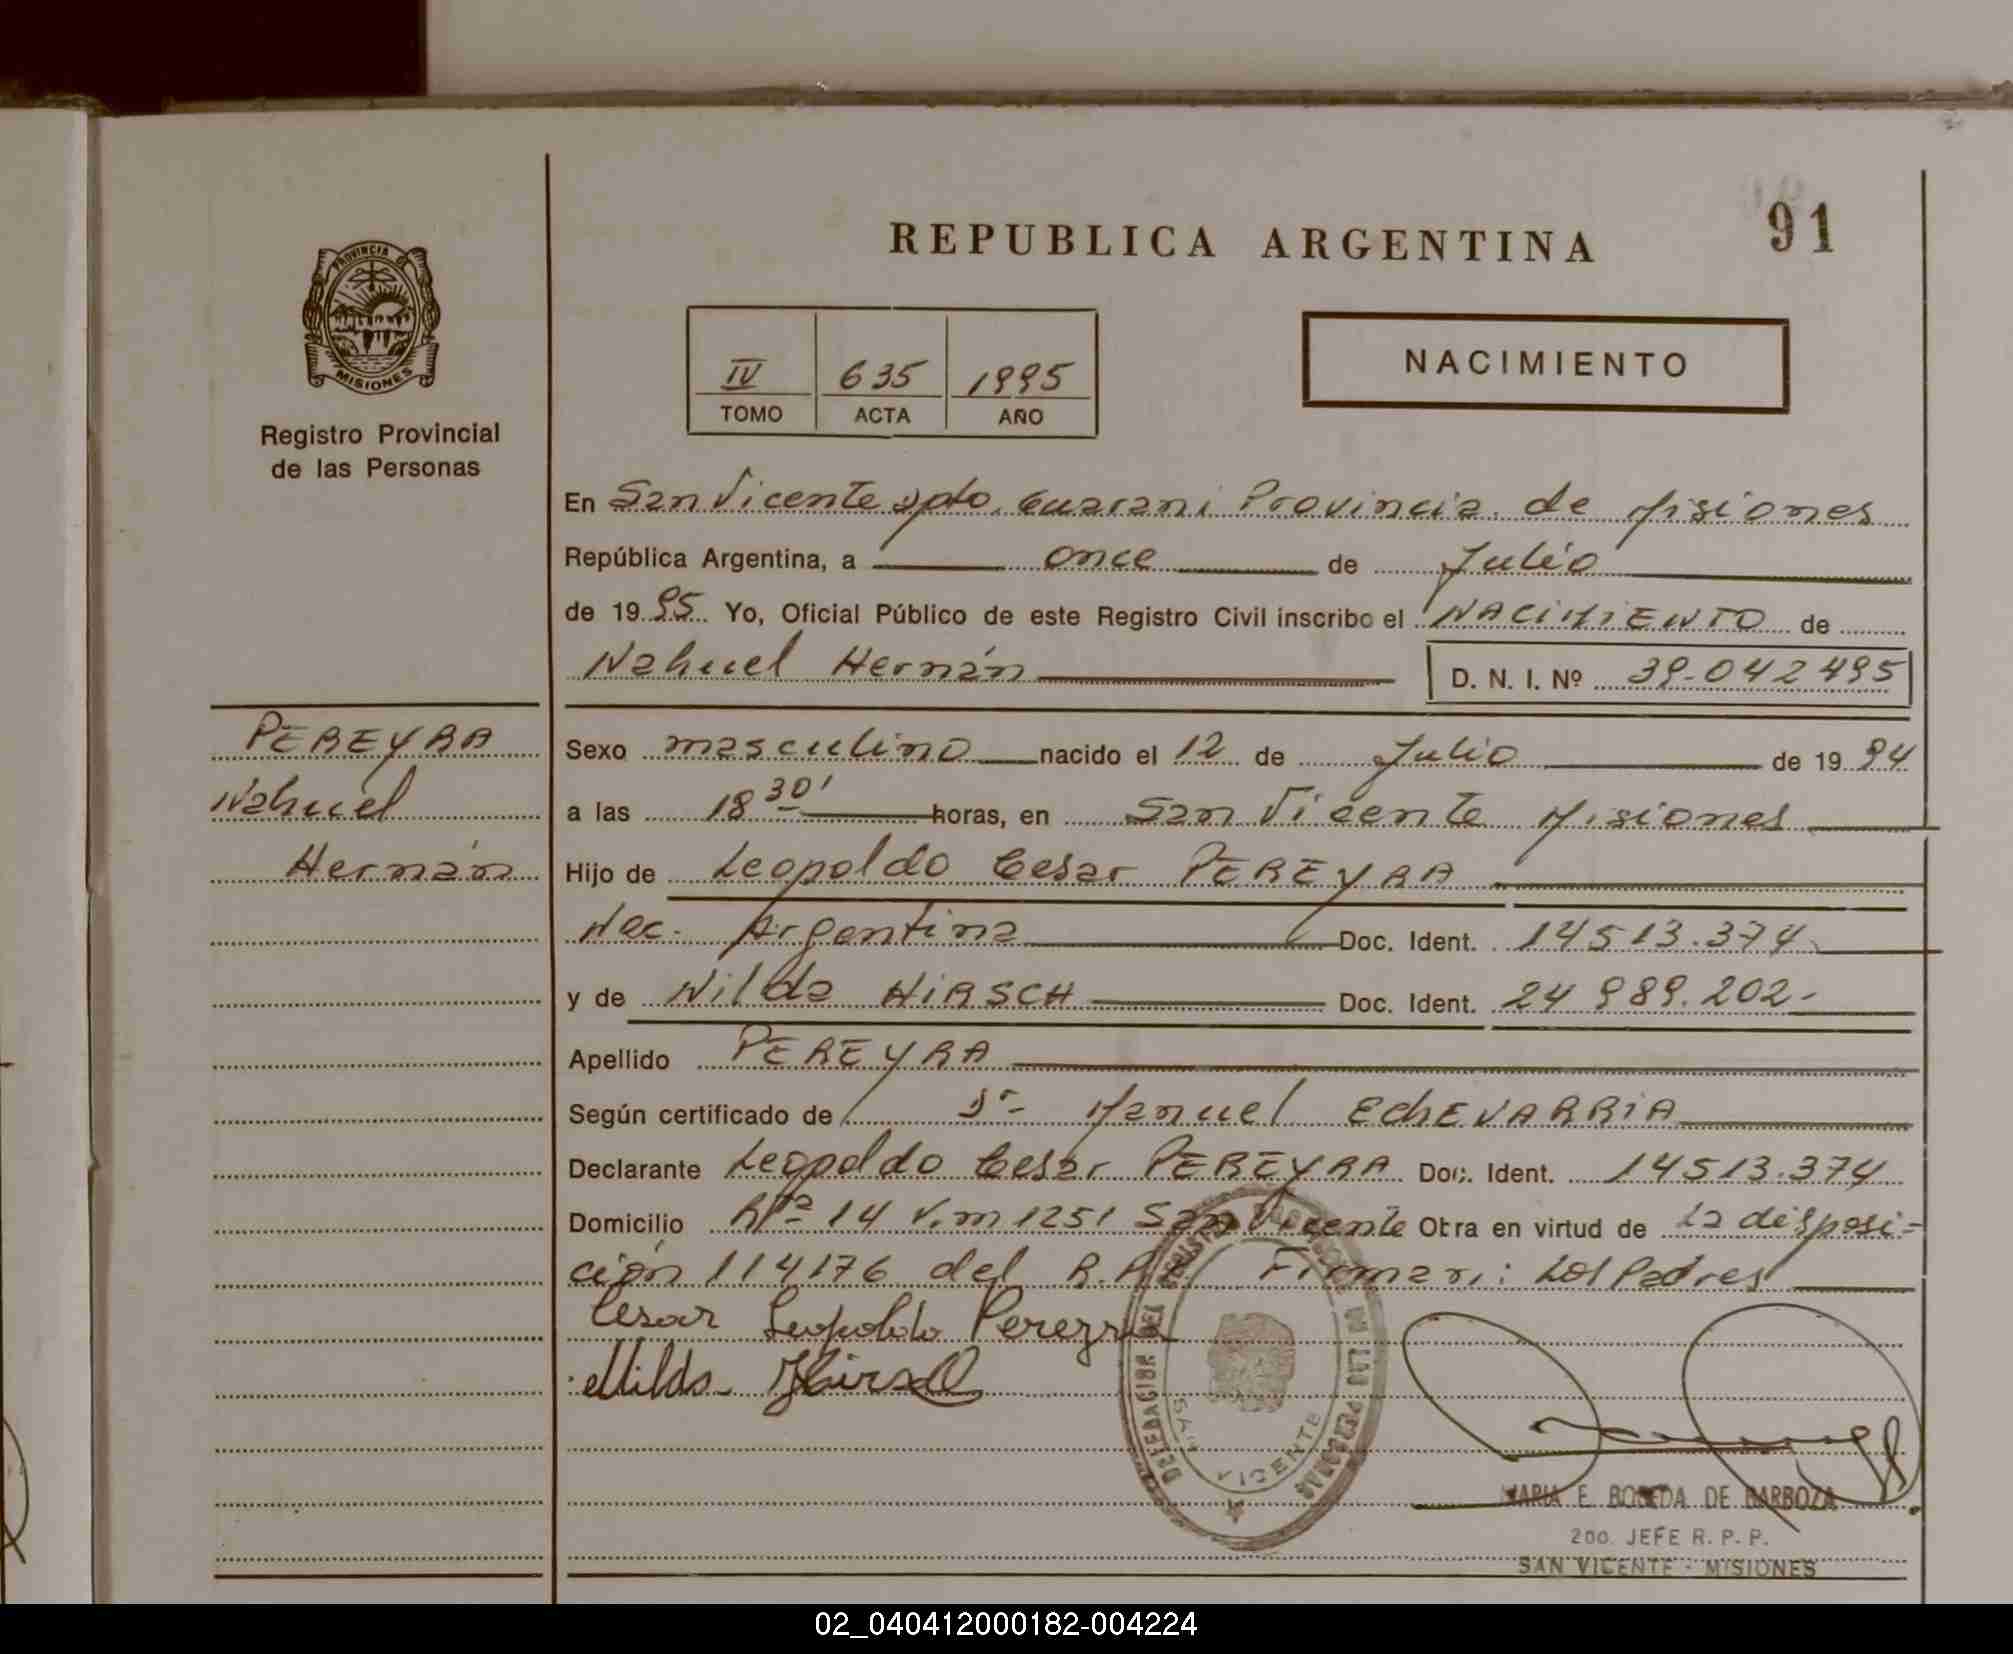 REPUBLICA ARGENTINA
91
PROVINCIA DE
MISIONES
Registro Provincial
de las Personas
IV 635 1995
TOMO ACTA AÑO
NACIMIENTO
En San Vicente Dpto. Guarani Provincia de Misiones
República Argentina, a once de Julio
de 1995 Yo, Oficial Público de este Registro Civil inscribo el NACIMIENTO de
Nahuel Hernán D. N. I. Nº 39.042 495
PEREYRA
Nahuel
Hernán
Sexo masculino nacido el 12 de Julio de 1994
a las 18 30' horas, en San Vicente Misiones
Hijo de Leopoldo Cesar PEREYRA
Nac. Argentina Doc. Ident. 14513.374
y de Nilda HIRSCH Doc. Ident. 24 989.202-
Apellido PEREYRA
Según certificado de Dr- Manuel EchEVARRIA
Declarante Leopoldo Cesar PEREYRA Doc. Ident. 14513.374
Domicilio 14 1251 San Vicente Otra en virtud de La disposi-
ción 114176 del Firman: Los Padres
Cesar Leopoldo Pereyra
Nilda Hirsch
SAN VICENTE
MARIA E. DE BARBOZA
2do. JEFE R. P. P.
SAN VICENTE - MISIONES
02_040412000182-004224